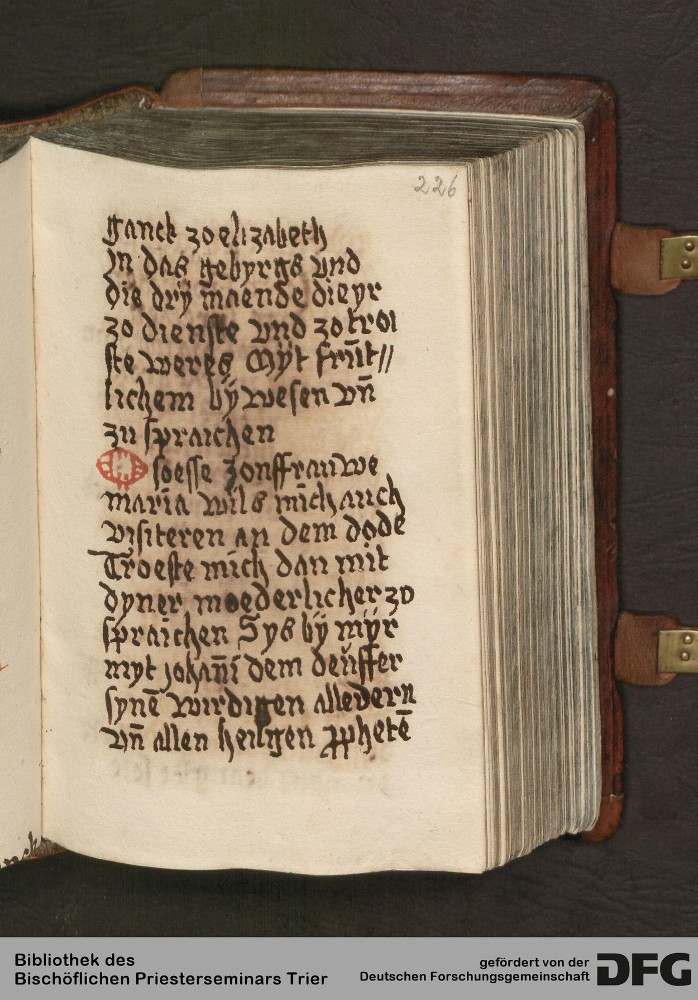 226
ganck zo elizabeth
jn das gebyrgs vnd
die dry maende die yr
zo dienste vnd zo troi
ste weres Myt frūt//
lichem bÿ wesen vn̄
zu spraichen
O soesse Jonffrauwe
maria wils mich auch
visiteren an dem dode
Troeste mich dan mit
dyner moederlicher zo
spraichen Sys bÿ mÿr
myt johan̄i dem deuffer
synē wirdigen alledern
vn̄ allen heilgen prophetē
Bibliothek des
Bischöflichen Priesterseminars Trier
gefördert von der
Deutschen Forschungsgemeinschaft
DFG